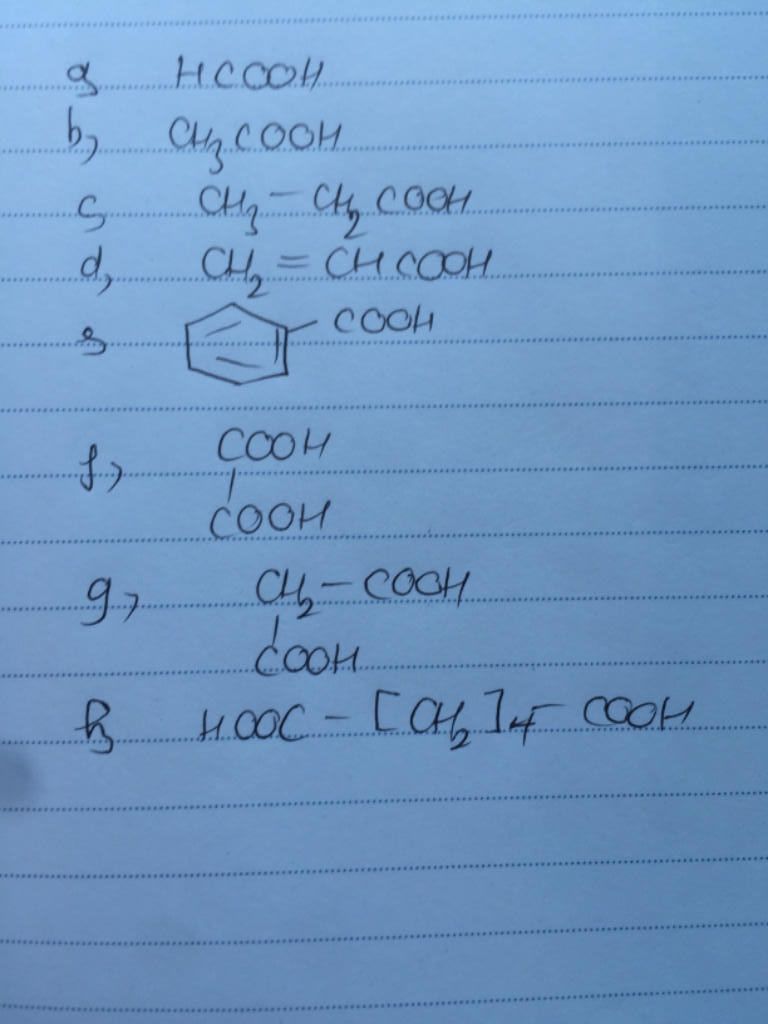 a, HCOOH
b, CH3COOH
c, CH3 - CH2 COOH
d, CH2 = CHCOOH
e, COOH
f, COOH
COOH
g, CH2 - COOH
COOH
h, HOOC - [CH2]4 - COOH